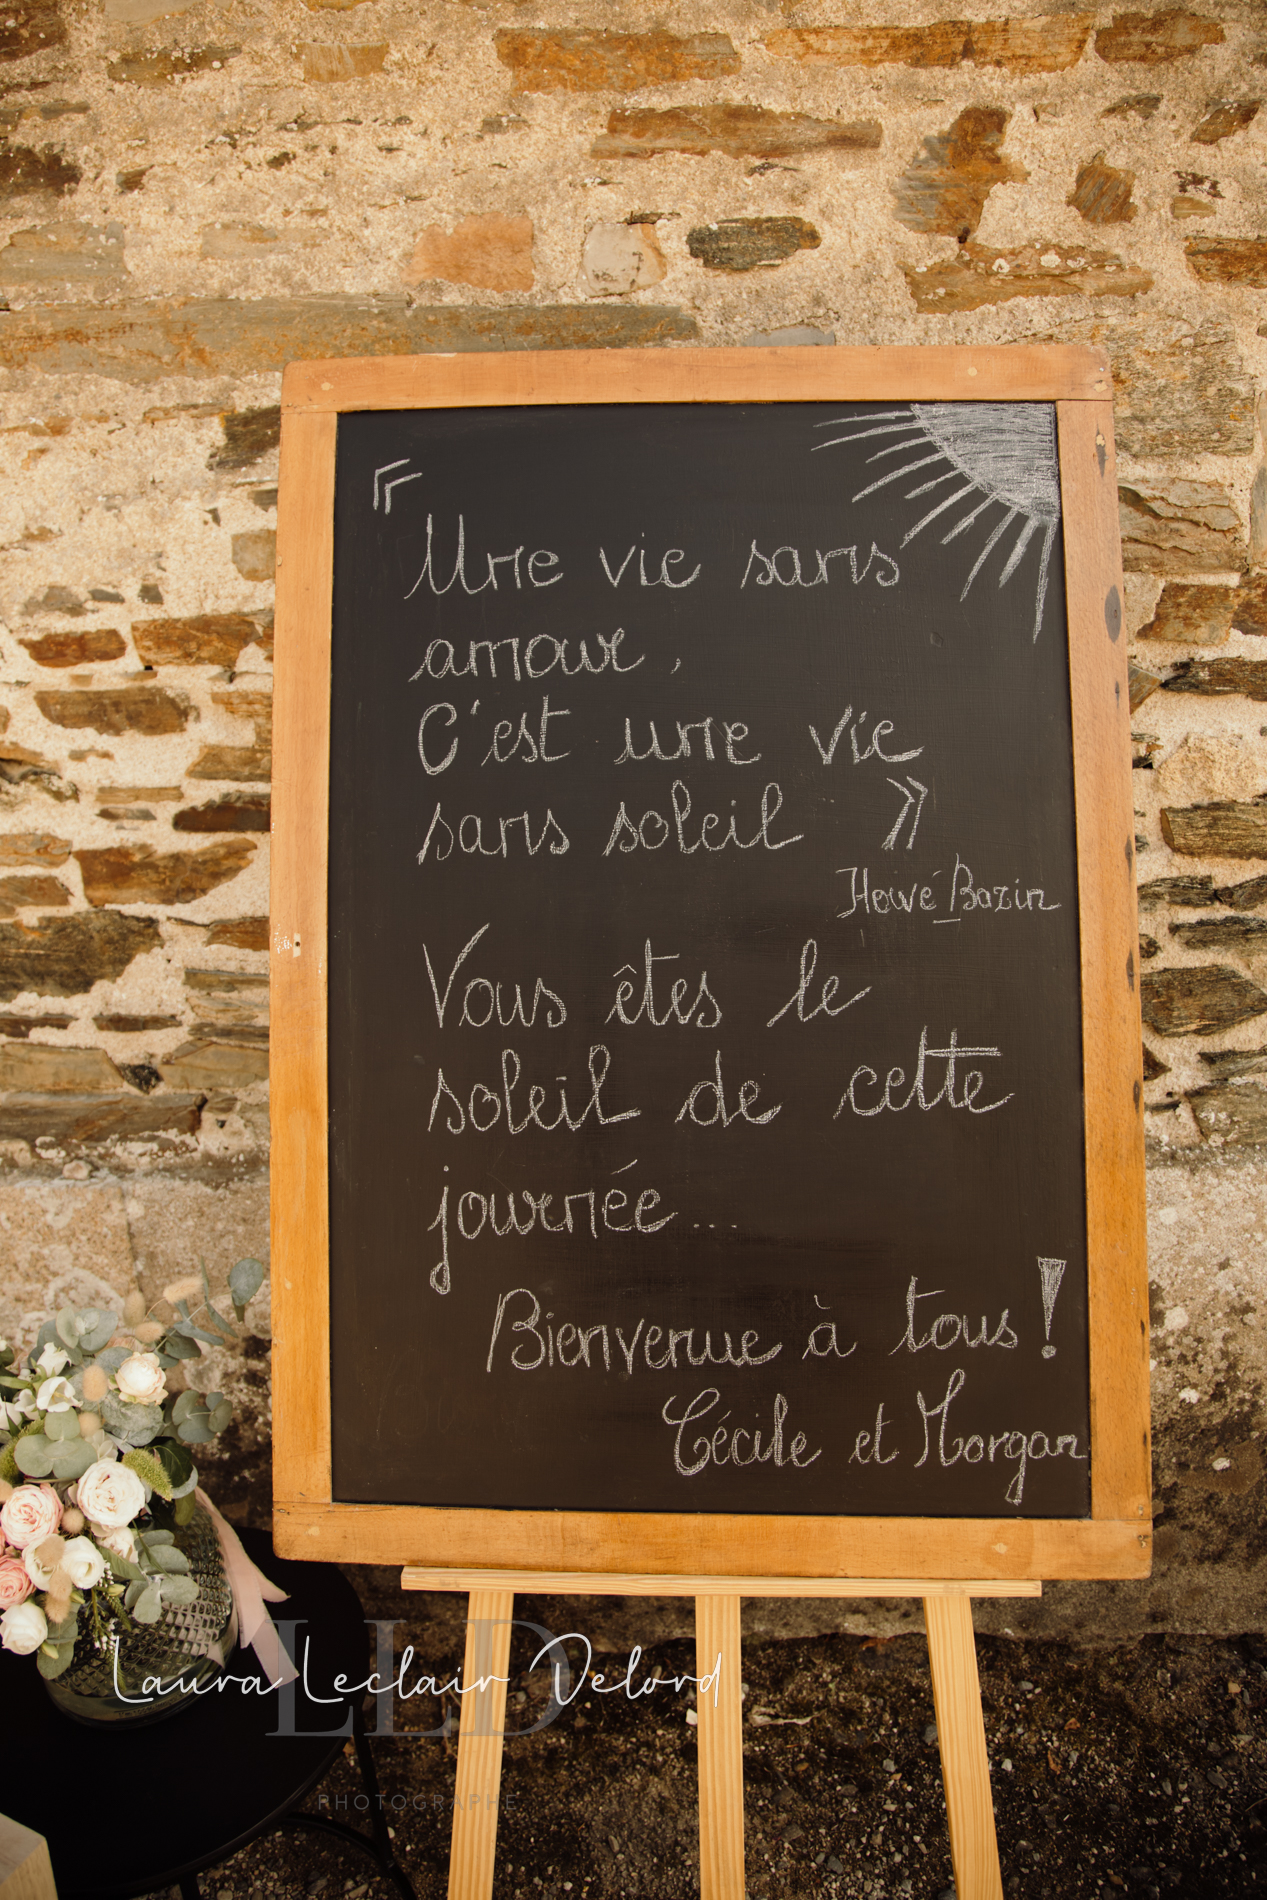 « Une vie sans
amour,
C'est une vie
sans soleil »
Hervé Bazin
Vous êtes le
soleil de cette
journée...
Bienvenue à tous !
Cécile et Morgan
Laura Leclair Delord
LLD
PHOTOGRAPHE